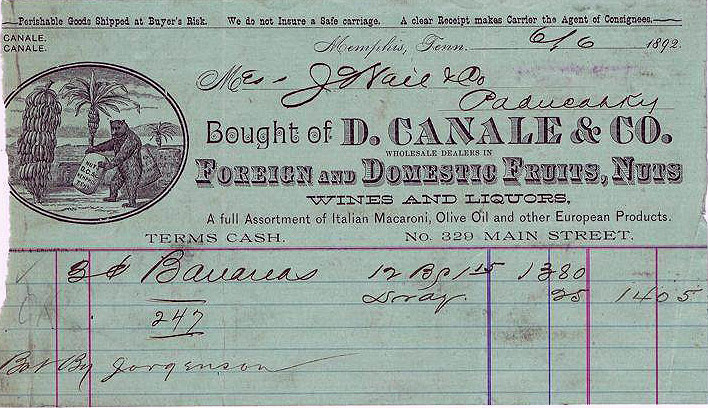 Perishable Goods Shipped at Buyer's Risk. We do not Insure a Safe carriage. A clear Receipt makes Carrier the Agent of Consignees.
CANALE.
CANALE.
Memphis, Tenn. 6/6 1892.
Mess J Wail & Co
Paducah Ky
Bought of D. CANALE & CO.
WHOLESALE DEALERS IN
FOREIGN AND DOMESTIC FRUITS, NUTS
WINES AND LIQUORS.
A full Assortment of Italian Macaroni, Olive Oil and other European Products.
TERMS CASH. No. 329 MAIN STREET.
Bananas 12 1 15 13 80
Dray. 25 14 05
247
Bot By Jorgenson